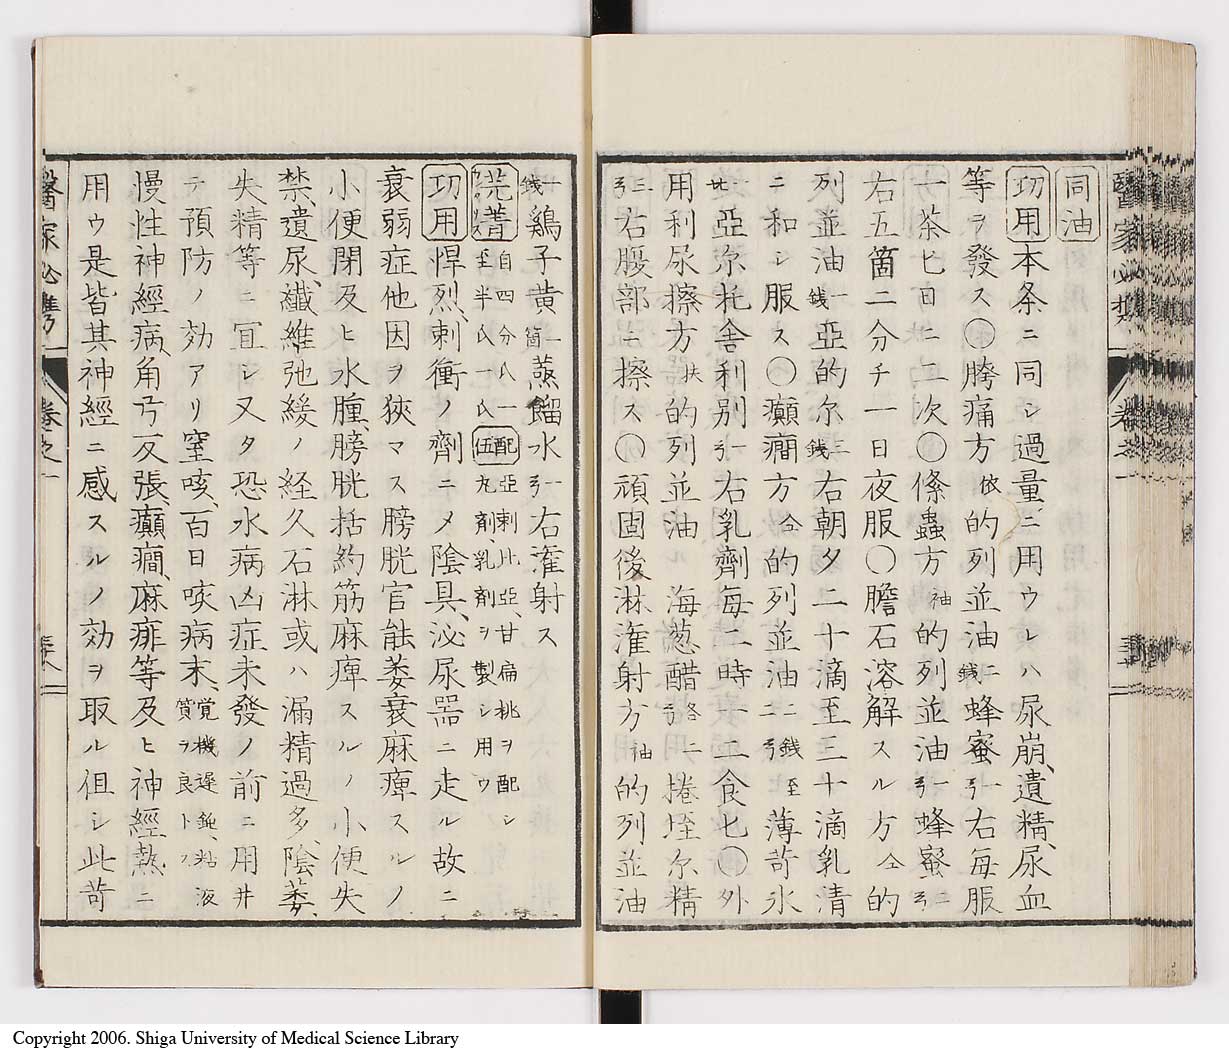 同油
功用本条ニ同シ過量ニ用ウレハ尿崩、遺精、尿血
等ヲ發ス〇胯痛方依的列並油二錢蜂蜜一弓右毎服
一茶匕日ニ二次〇條蟲方袖的列並油一弓蜂蜜二弓
右五箇二分チ一日夜服〇膽石溶解スル方仝的
列並油一錢亞的尓三錢右朝夕二十滴至三十滴乳清
ニ和シ服ス〇癲癇方仝的列並油二錢至二弓薄苛水
亞尓托舎利別一弓右乳劑毎二時一上食匕〇外
用利尿擦方扶的列並油海葱醋各二捲垤尓精
三弓右腹部ニ擦ス〇頑固後淋潅射方袖的列並油
一錢鷄子黄一箇蒸餾水一弓右潅射ス
自四分八一至半氏一氏配伍亞剌比亞、甘扁桃ヲ配シ丸劑、乳劑ヲ製シ用ウ
功用悍烈、刺衝ノ劑ニメ陰具、泌尿器ニ走ル故ニ
衰弱症他因ヲ狹マス膀胱官能萎衰麻痺スルノ
小便閉及ヒ水腫、膀胱括約筋麻痺スルノ小便失
禁、遺尿、纖維弛緩ノ経久石淋或ハ漏精過多、陰萎、
失精等ニ冝シ又タ恐水病凶症未發ノ前ニ用井
テ預防ノ効アリ窒咳、百日咳病末、覚機遅鈍、粘液質ヲ良トス
慢性神經病、角弓反張、癲癇、麻痱等及ヒ神經熱ニ
用ウ是皆其神經ニ感スルノ効ヲ取ル但シ此苛
醫家必携
卷之一